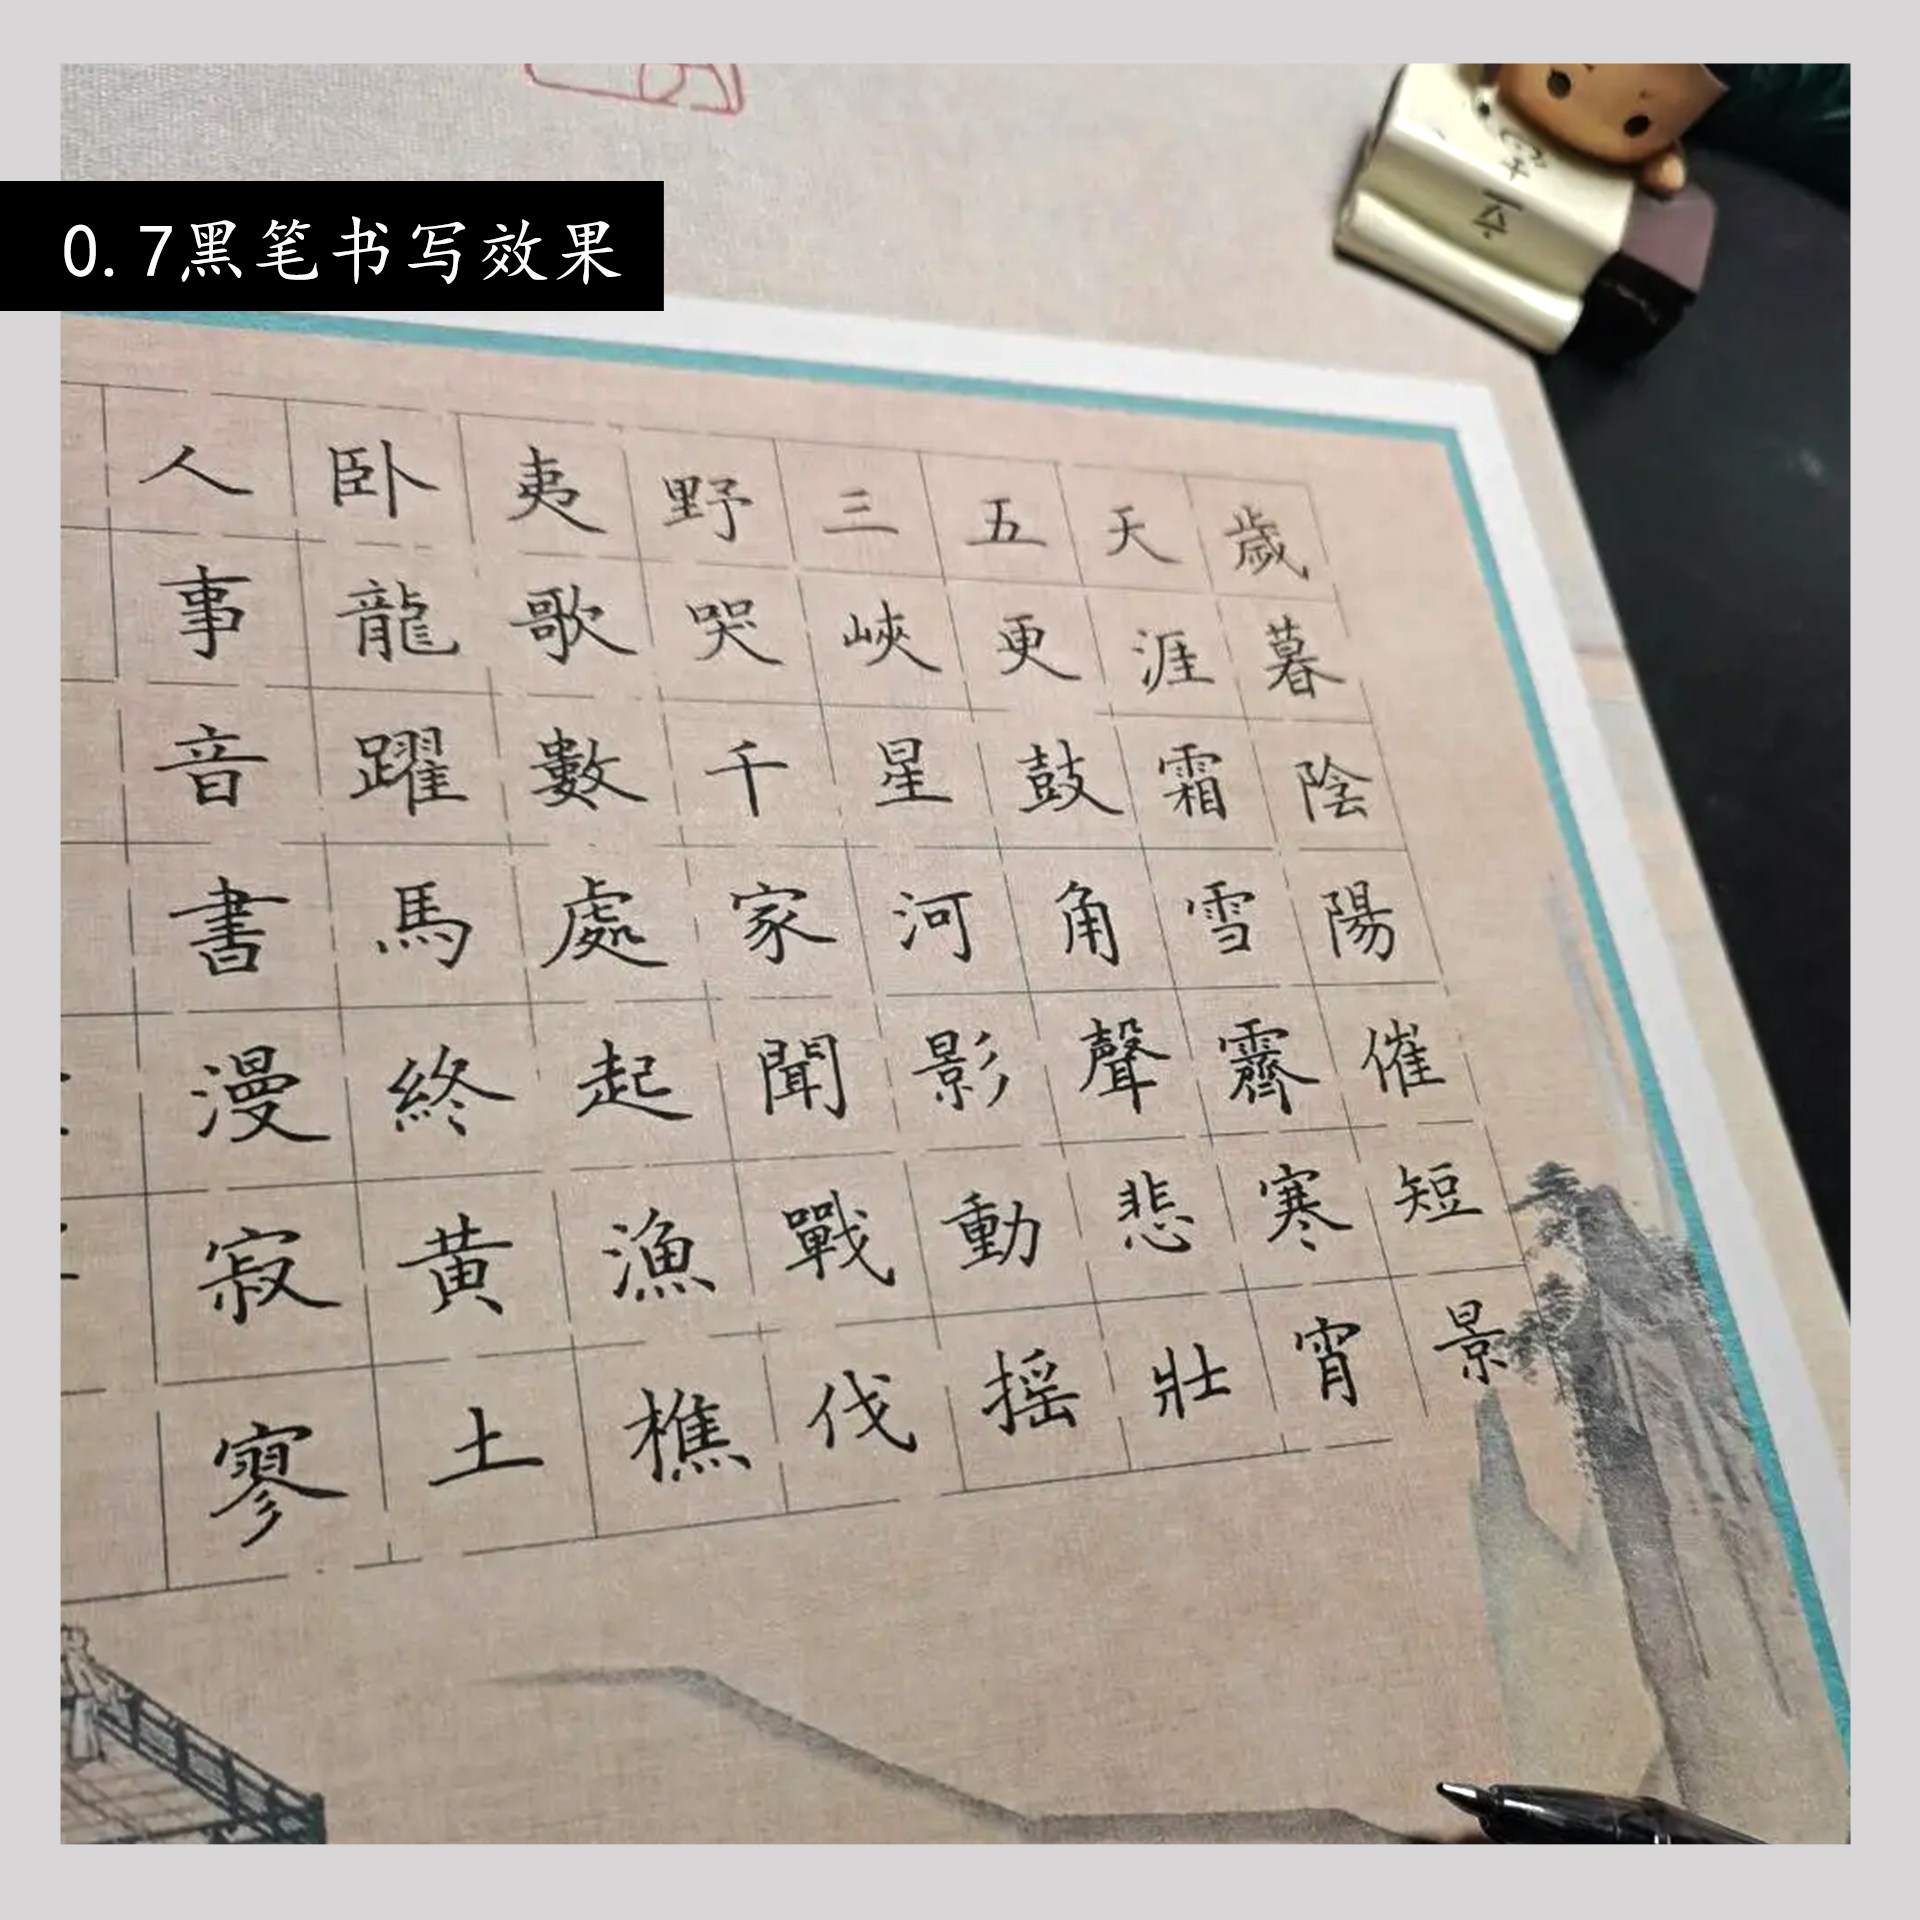 0.7黑笔书写效果
歲暮陰陽催短景
天涯霜雪霽寒宵
五更鼓角聲悲壯
三峽星河影動摇
野哭千家聞戰伐
夷歌數處起漁樵
卧龍躍馬終黄土
人事音書漫寂寥